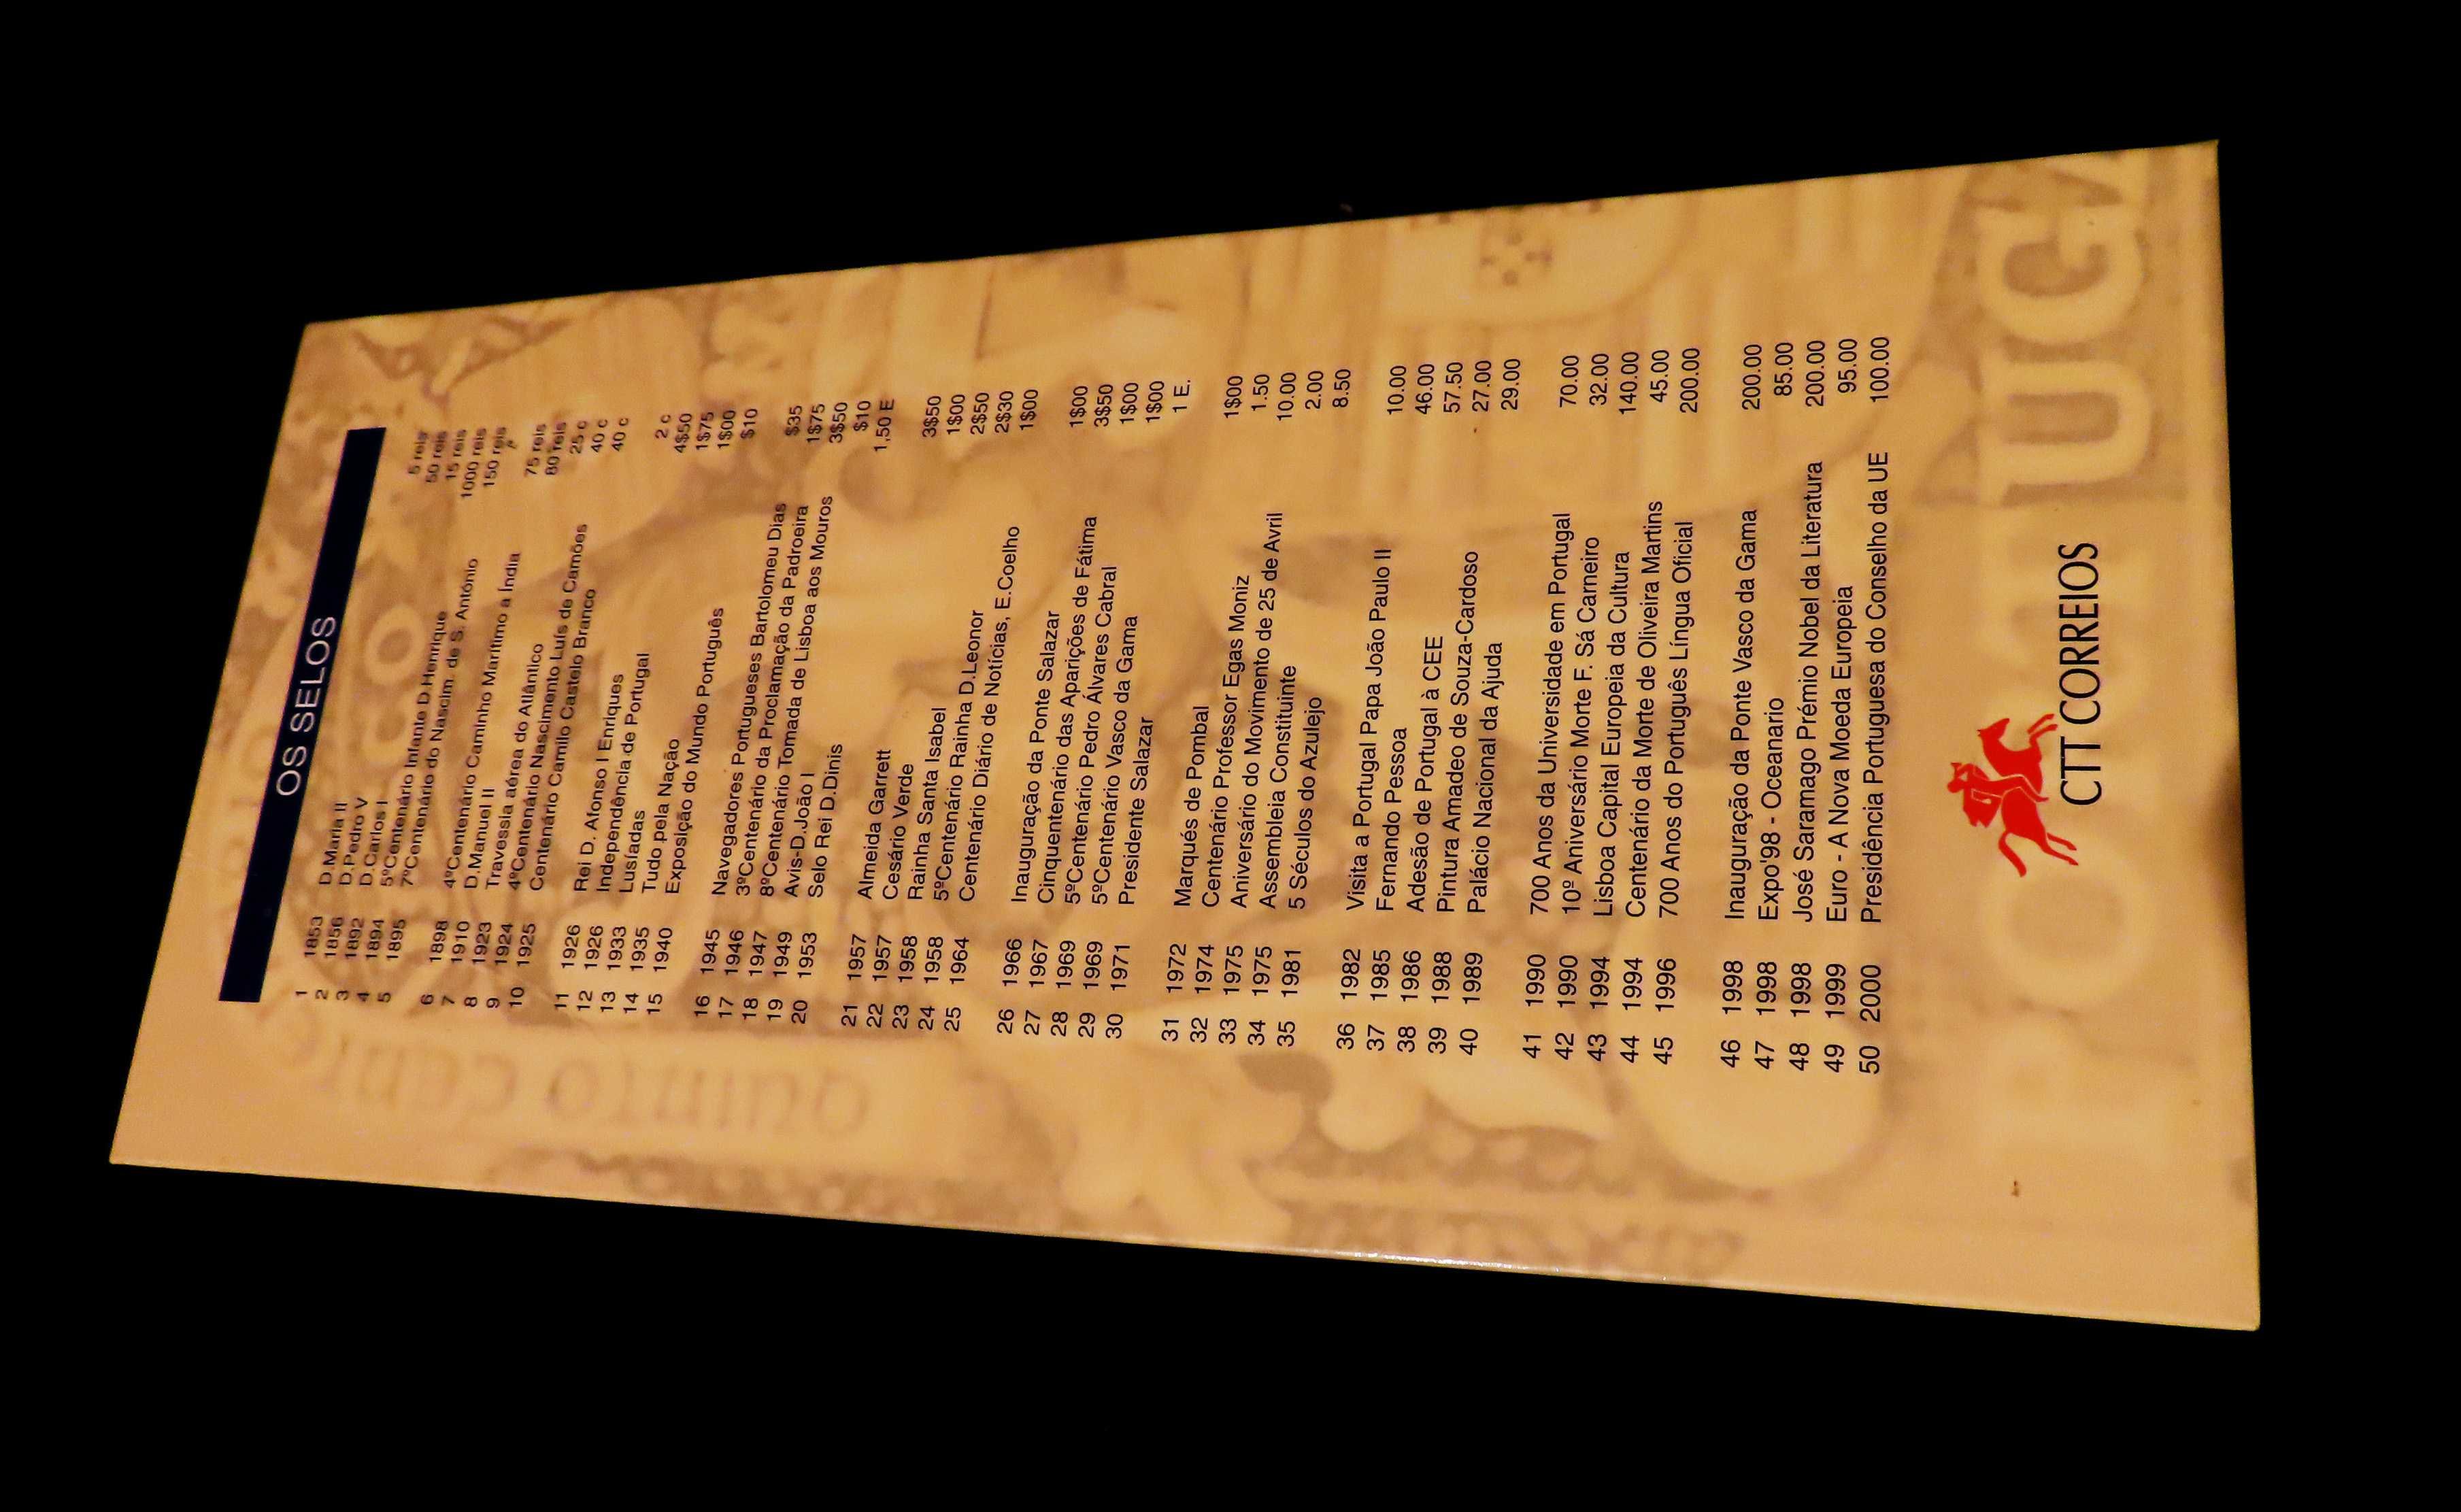 OS SELOS
1 1853 D.Maria II 5 reis
2 1856 D.Pedro V 50 reis
3 1892 D.Carlos I 15 reis
4 1894 5ºCentenário Infante D.Henrique 1000 reis
5 1895 7ºCentenário do Nascim. de S. António 150 reis
6 1898 4ºCentenário Caminho Marítimo a Índia 75 reis
7 1910 D.Manuel II 80 reis
8 1923 Travessia aérea do Atlântico 25 c
9 1924 4ºCentenário Nascimento Luís de Camões 40 c
10 1925 Centenário Camilo Castelo Branco 40 c
11 1926 Rei D. Afonso I Enriques 2 c
12 1926 Independência de Portugal 4$50
13 1933 Lusíadas 1$75
14 1935 Tudo pela Nação 1$00
15 1940 Exposição do Mundo Português $10
16 1945 Navegadores Portugueses Bartolomeu Dias $35
17 1946 3ºCentenário da Proclamação da Padroeira 1$75
18 1947 8ºCentenário Tomada de Lisboa aos Mouros 3$50
19 1949 Avis-D.João I $10
20 1953 Selo Rei D.Dinis 1,50 E
21 1957 Almeida Garrett 3$50
22 1957 Cesário Verde 1$00
23 1958 Rainha Santa Isabel 2$50
24 1958 5ºCentenário Rainha D.Leonor 2$30
25 1964 Centenário Diário de Notícias, E.Coelho 1$00
26 1966 Inauguração da Ponte Salazar 1$00
27 1967 Cinquentenário das Aparições de Fátima 3$50
28 1969 5ºCentenário Pedro Álvares Cabral 1$00
29 1969 5ºCentenário Vasco da Gama 1$00
30 1971 Presidente Salazar 1 E.
31 1972 Marquês de Pombal 1$00
32 1974 Centenário Professor Egas Moniz 1.50
33 1975 Aniversário do Movimento de 25 de Avril 10.00
34 1975 Assembleia Constituinte 2.00
35 1981 5 Séculos do Azulejo 8.50
36 1982 Visita a Portugal Papa João Paulo II 10.00
37 1985 Fernando Pessoa 46.00
38 1986 Adesão de Portugal à CEE 57.50
39 1988 Pintura Amadeo de Souza-Cardoso 27.00
40 1989 Palácio Nacional da Ajuda 29.00
41 1990 700 Anos da Universidade em Portugal 70.00
42 1990 10º Aniversário Morte F. Sá Carneiro 32.00
43 1994 Lisboa Capital Europeia da Cultura 140.00
44 1994 Centenário da Morte de Oliveira Martins 45.00
45 1996 700 Anos do Português Língua Oficial 200.00
46 1998 Inauguração da Ponte Vasco da Gama 200.00
47 1998 Expo'98 - Oceanario 85.00
48 1998 José Saramago Prémio Nobel da Literatura 200.00
49 1999 Euro - A Nova Moeda Europeia 95.00
50 2000 Presidência Portuguesa do Conselho da UE 100.00
CTT CORREIOS
QUINTO CENTE